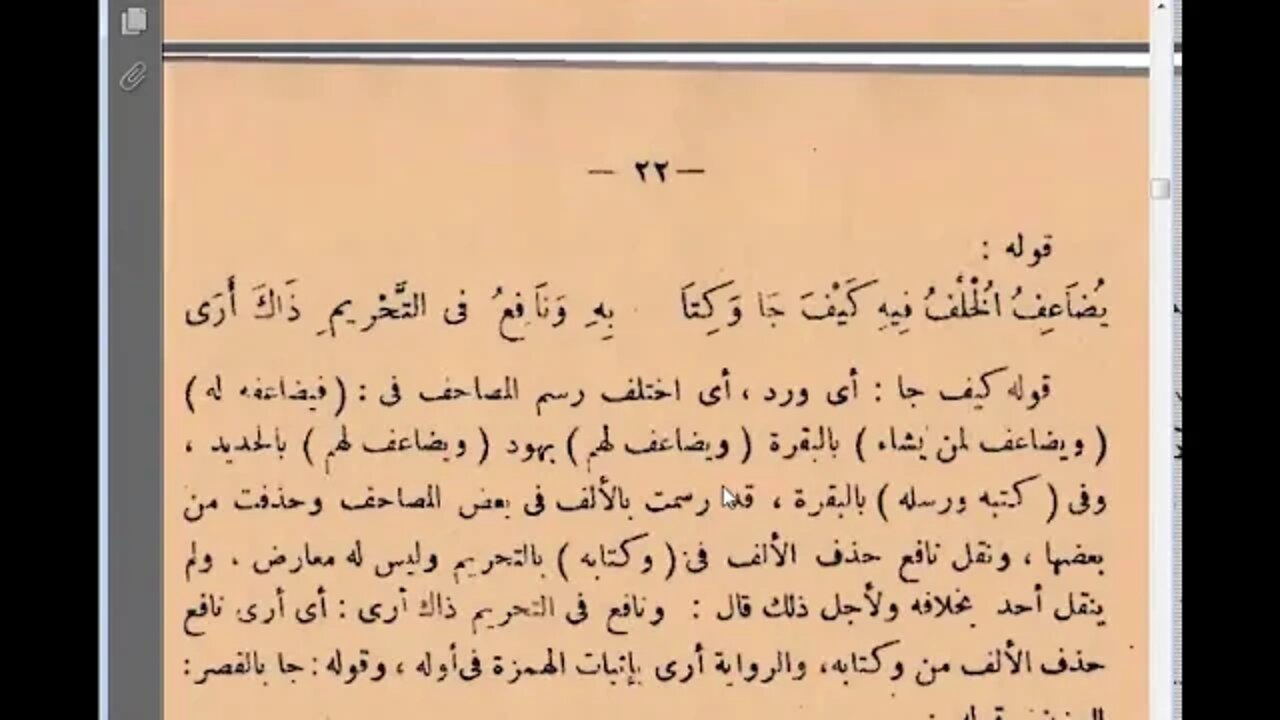 — ٢٢ —
قوله :
يُضَاعِفُ اُلْخُلْفُ فِيهِ كَيْفَ جَا وَكِتَا بِهِ وَنَافِعُ فى التَّحْرِيمِ ذَاكَ أَرَى
قوله كيف جا : أى ورد ، أى اختلف رسم المصاحف فى : ( فيضاعفه له )
( ويضاعف لمن يشاء ) بالبقرة ( ويضاعف لهم ) بهود ( ويضاعف لهم ) بالحديد ،
وفى ( كتبه ورسله ) بالبقرة ، قد رسمت بالألف فى بعض المصاحف وحذفت من
بعضها ، ونقل نافع حذف الألف فى ( وكتابه ) بالتحريم وليس له معارض . ولم
ينقل أحد بخلافه ولأجل ذلك قال : ونافع فى التحريم ذاك أرى : أى أرى نافع
حذف الألف من وكتابه، والرواية أرى بإثبات الهمزة فى أوله ، وقوله : جا بالقصر :